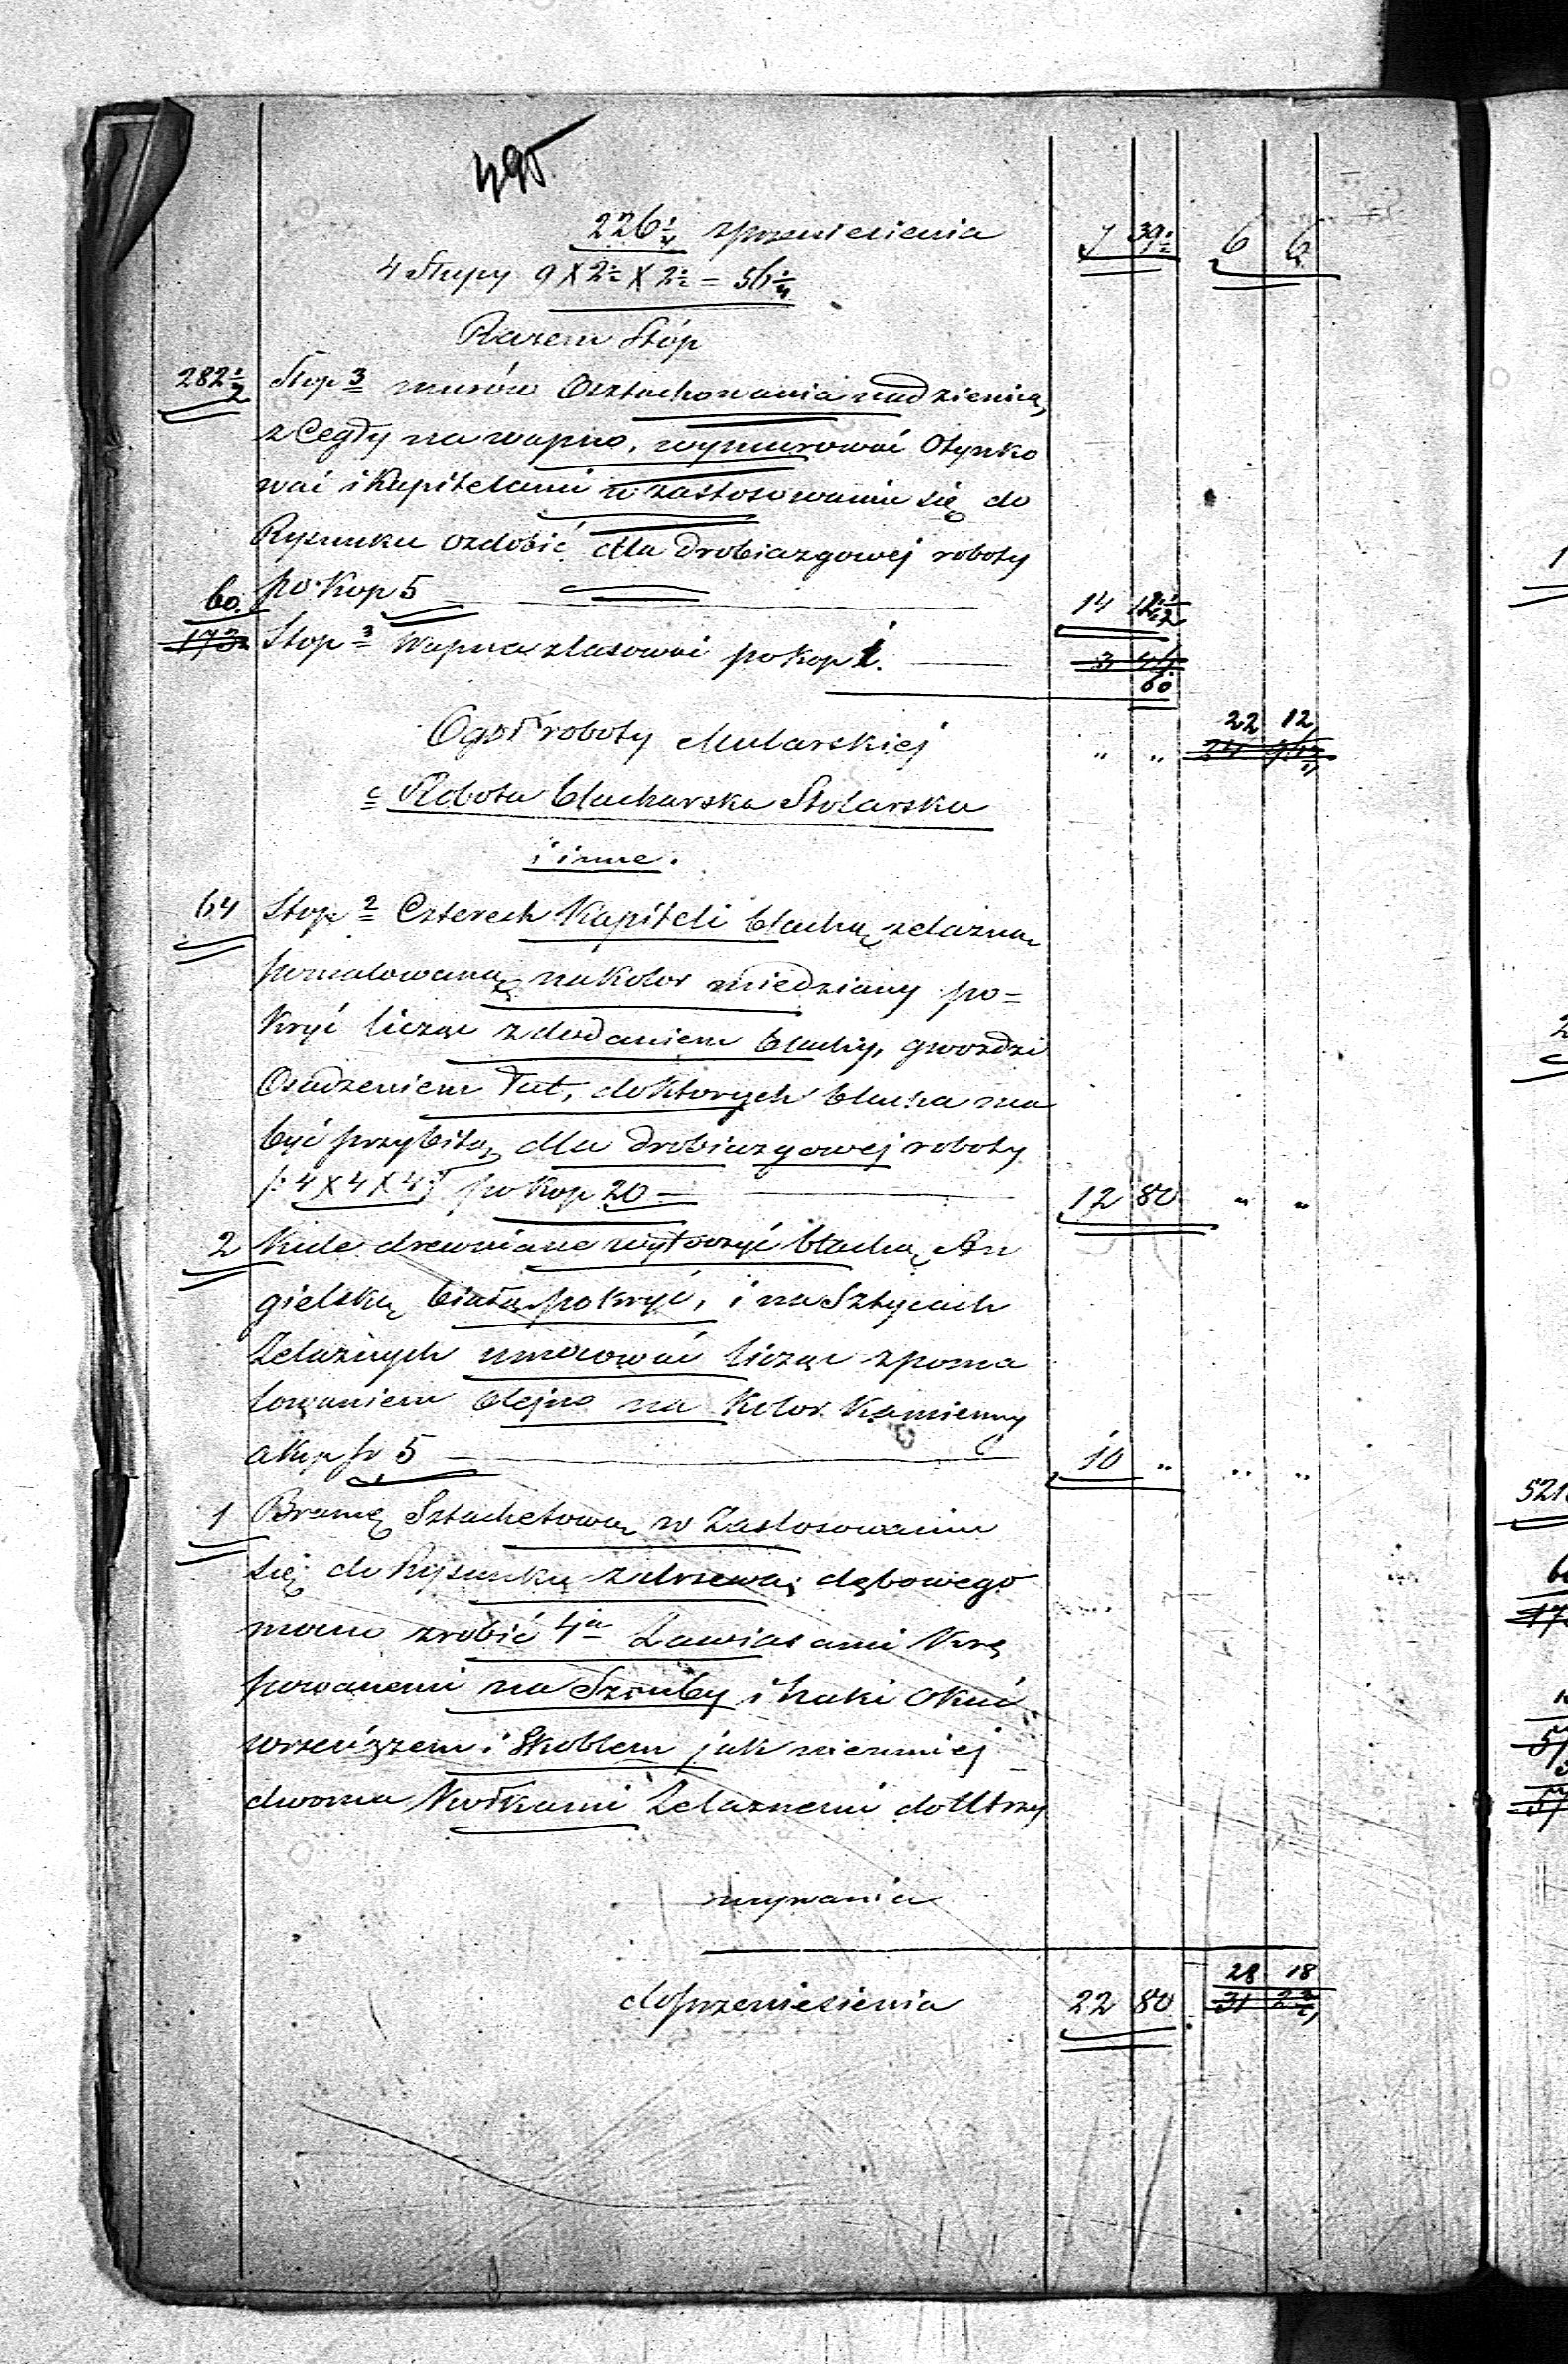 495
226 1/4 z przeniesienia 7 39 1/2 6 6
4 Słupy 9 X 2 1/2 X 2 1/2 = 56 1/4
Razem Stóp
282 1/2 Stop 3 murów Osztachowania nad ziemią
z Cegły na wapno, wymurować Otynko
wać i Kapitelami w zastosowaniu się do
Rysunku ozdobić dla drobiazgowej roboty
po Kop 5 14 12 1/2
60. Stop 3 Wapna zlasować po kop 1.
60
Ogół roboty Mularskiej " " 22 12
c Robota blacharska Stolarska
i inne.
64 Stop 2 Czterech Kapiteli blachą żelazną
pomalowaną na Kolor miedziany po=
kryć licząc z dodaniem blachy, gwoździ
Osadzeniem Tut, do których blacha ma
być przybitą dla drobiazgowej roboty
/: 4 X 4 X 4 :/ po Kop 20 — 12 80 " "
2 Kule drewniane wytoczyć blachą An
gielską białą pokryć, i na Sztycach
Żelaznych umocować licząc z poma
lowaniem Olejno na Kolor Kamienny
a 5 10 " " "
1 Bramę Sztachetową w Zastosowaniu
się do Rysunku z drzewa dębowego
mocno zrobić 4a Zawiasami Krę
powanemi na Szruby i haki Okuć
wrzeciązem i Skoblem jak niemniej
dwoma Kółkami Żelaznemi do Utrzy
mywania
do przeniesienia 22 80 28 18